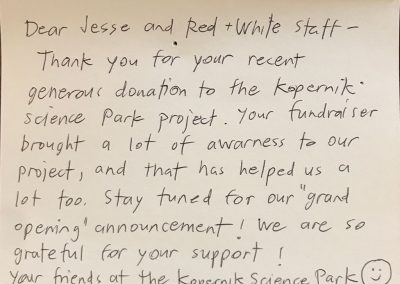 Dear Jesse and Red + White Staff –
Thank you for your recent
generous donation to the Kopernik
science Park project. Your fundraiser
brought a lot of awarness to our
project, and that has helped us a
lot too. Stay tuned for our "grand
opening" announcement! We are so
grateful for your support!
Your friends at the Kopernik Science Park ☺